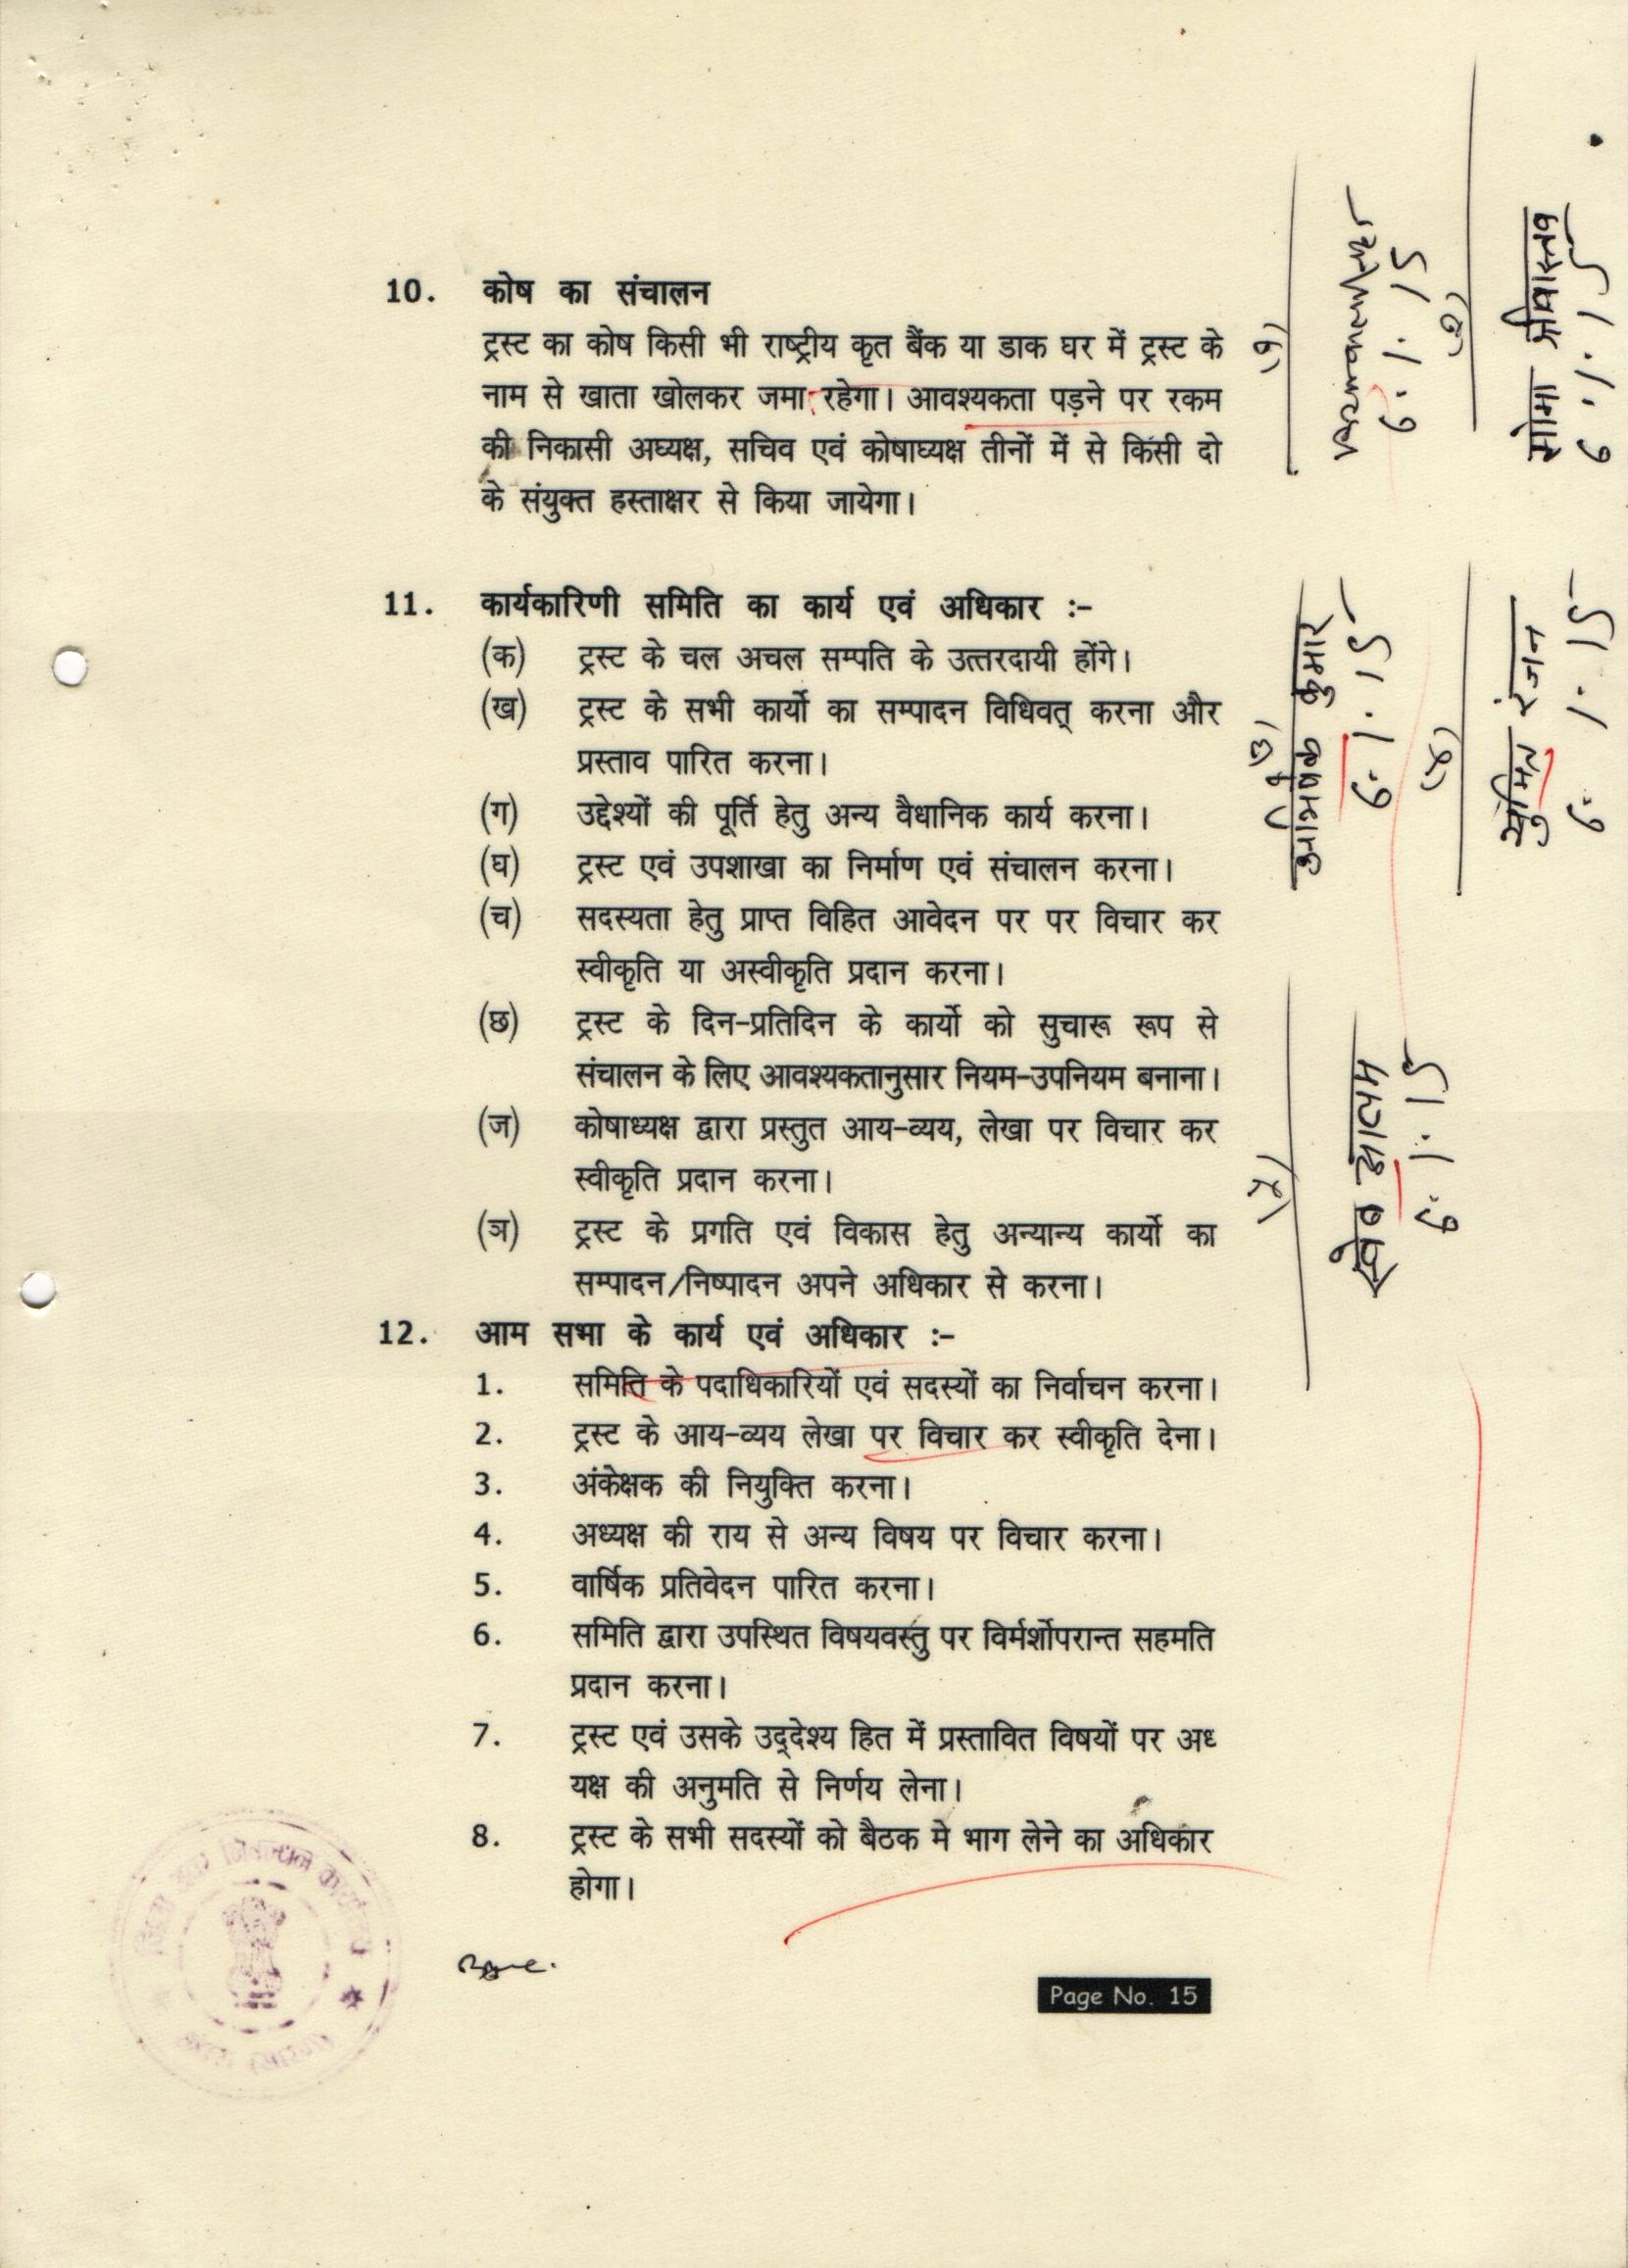 10. कोष का संचालन
ट्रस्ट का कोष किसी भी राष्ट्रीय कृत बैंक या डाक घर में ट्रस्ट के
नाम से खाता खोलकर जमा रहेगा। आवश्यकता पड़ने पर रकम
की निकासी अघ्यक्ष, सचिव एवं कोषाघ्यक्ष तीनों में से किसी दो
के संयुक्त हस्ताक्षर से किया जायेगा।
11. कार्यकारिणी समिति का कार्य एवं अधिकार :-
(क) ट्रस्ट के चल अचल सम्पति के उत्तरदायी होंगे।
(ख) ट्रस्ट के सभी कार्यो का सम्पादन विधिवत् करना और
प्रस्ताव पारित करना।
(ग) उद्देश्यों की पूर्ति हेतु अन्य वैधानिक कार्य करना।
(घ) ट्रस्ट एवं उपशाखा का निर्माण एवं संचालन करना।
(च) सदस्यता हेतु प्राप्त विहित आवेदन पर पर विचार कर
स्वीकृति या अस्वीकृति प्रदान करना।
(छ) ट्रस्ट के दिन-प्रतिदिन के कार्यो को सुचारू रूप से
संचालन के लिए आवश्यकतानुसार नियम-उपनियम बनाना।
(ज) कोषाध्यक्ष द्वारा प्रस्तुत आय-व्यय, लेखा पर विचार कर
स्वीकृति प्रदान करना।
(ञ) ट्रस्ट के प्रगति एवं विकास हेतु अन्यान्य कार्यो का
सम्पादन/निष्पादन अपने अधिकार से करना।
12. आम सभा के कार्य एवं अधिकार :-
1. समिति के पदाधिकारियों एवं सदस्यों का निर्वाचन करना।
2. ट्रस्ट के आय-व्यय लेखा पर विचार कर स्वीकृति देना।
3. अंकेक्षक की नियुक्ति करना।
4. अध्यक्ष की राय से अन्य विषय पर विचार करना।
5. वार्षिक प्रतिवेदन पारित करना।
6. समिति द्वारा उपस्थित विषयवस्तु पर विर्मर्शोपरान्त सहमति
प्रदान करना।
7. ट्रस्ट एवं उसके उद्‌देश्य हित में प्रस्तावित विषयों पर अध्
यक्ष की अनुमति से निर्णय लेना।
8. ट्रस्ट के सभी सदस्यों को बैठक मे भाग लेने का अधिकार
होगा।
Page No. 15
(१)
6.1.15
(२)
सोमा श्रीवास्तव
6.1.15
(३)
अभिषेक कुमार
6.1.15
(४)
सुमित रंजन
6.1.15
(५)
आलम
6.1.15